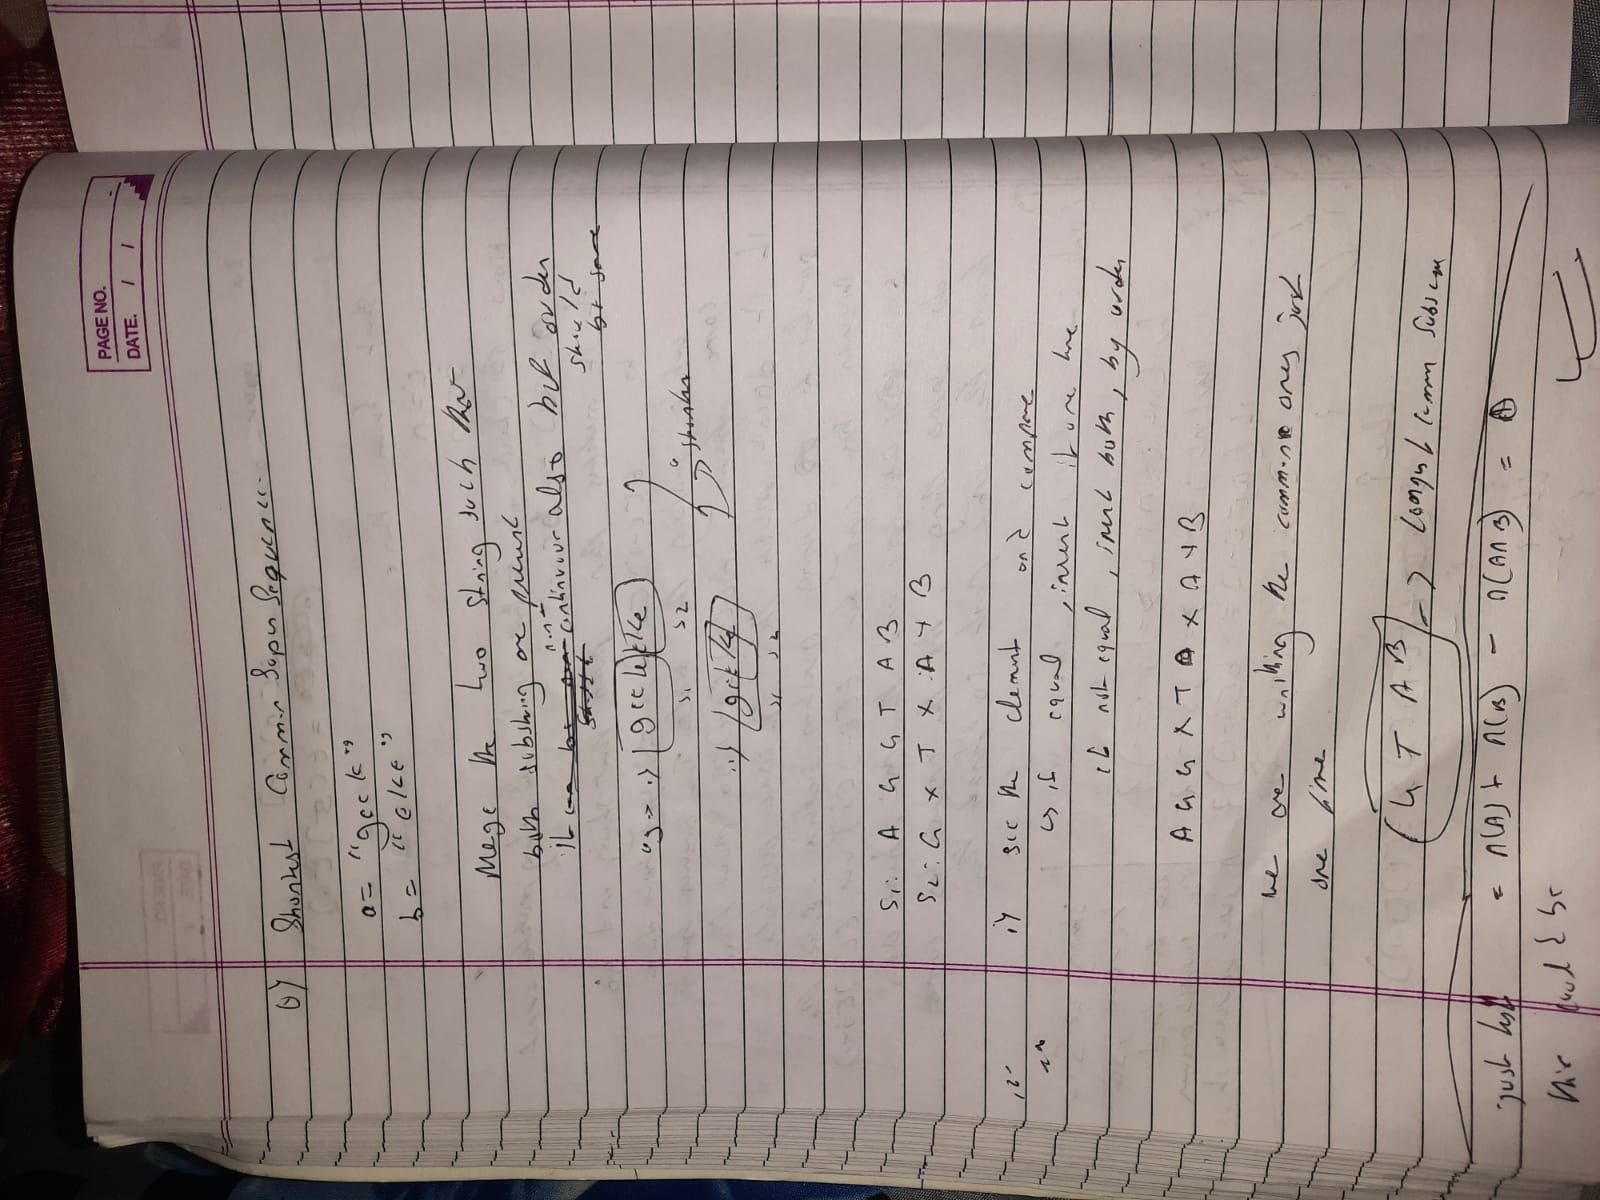 PAGE NO.
DATE. / /
Q) Shortest Common Super Sequence.
a = "geek"
b = "eke"
Merge the two string such that
both substring are present
it continuour also but order
not
should
be same
eg → i) geekeke
s1 s2
shorter
ii) geeke
s1 s2
S1: A G G T A B
S2: G X T X A Y B
i) see the element and compare
↳ if equal, insert it one time
if not equal, insert both, by order
A G G X T A X A Y B
we are writting the common ones just
one time
G T A B → Longest common Subseq
just like = n(A) + n(B) - n(A∩B) =
this could be